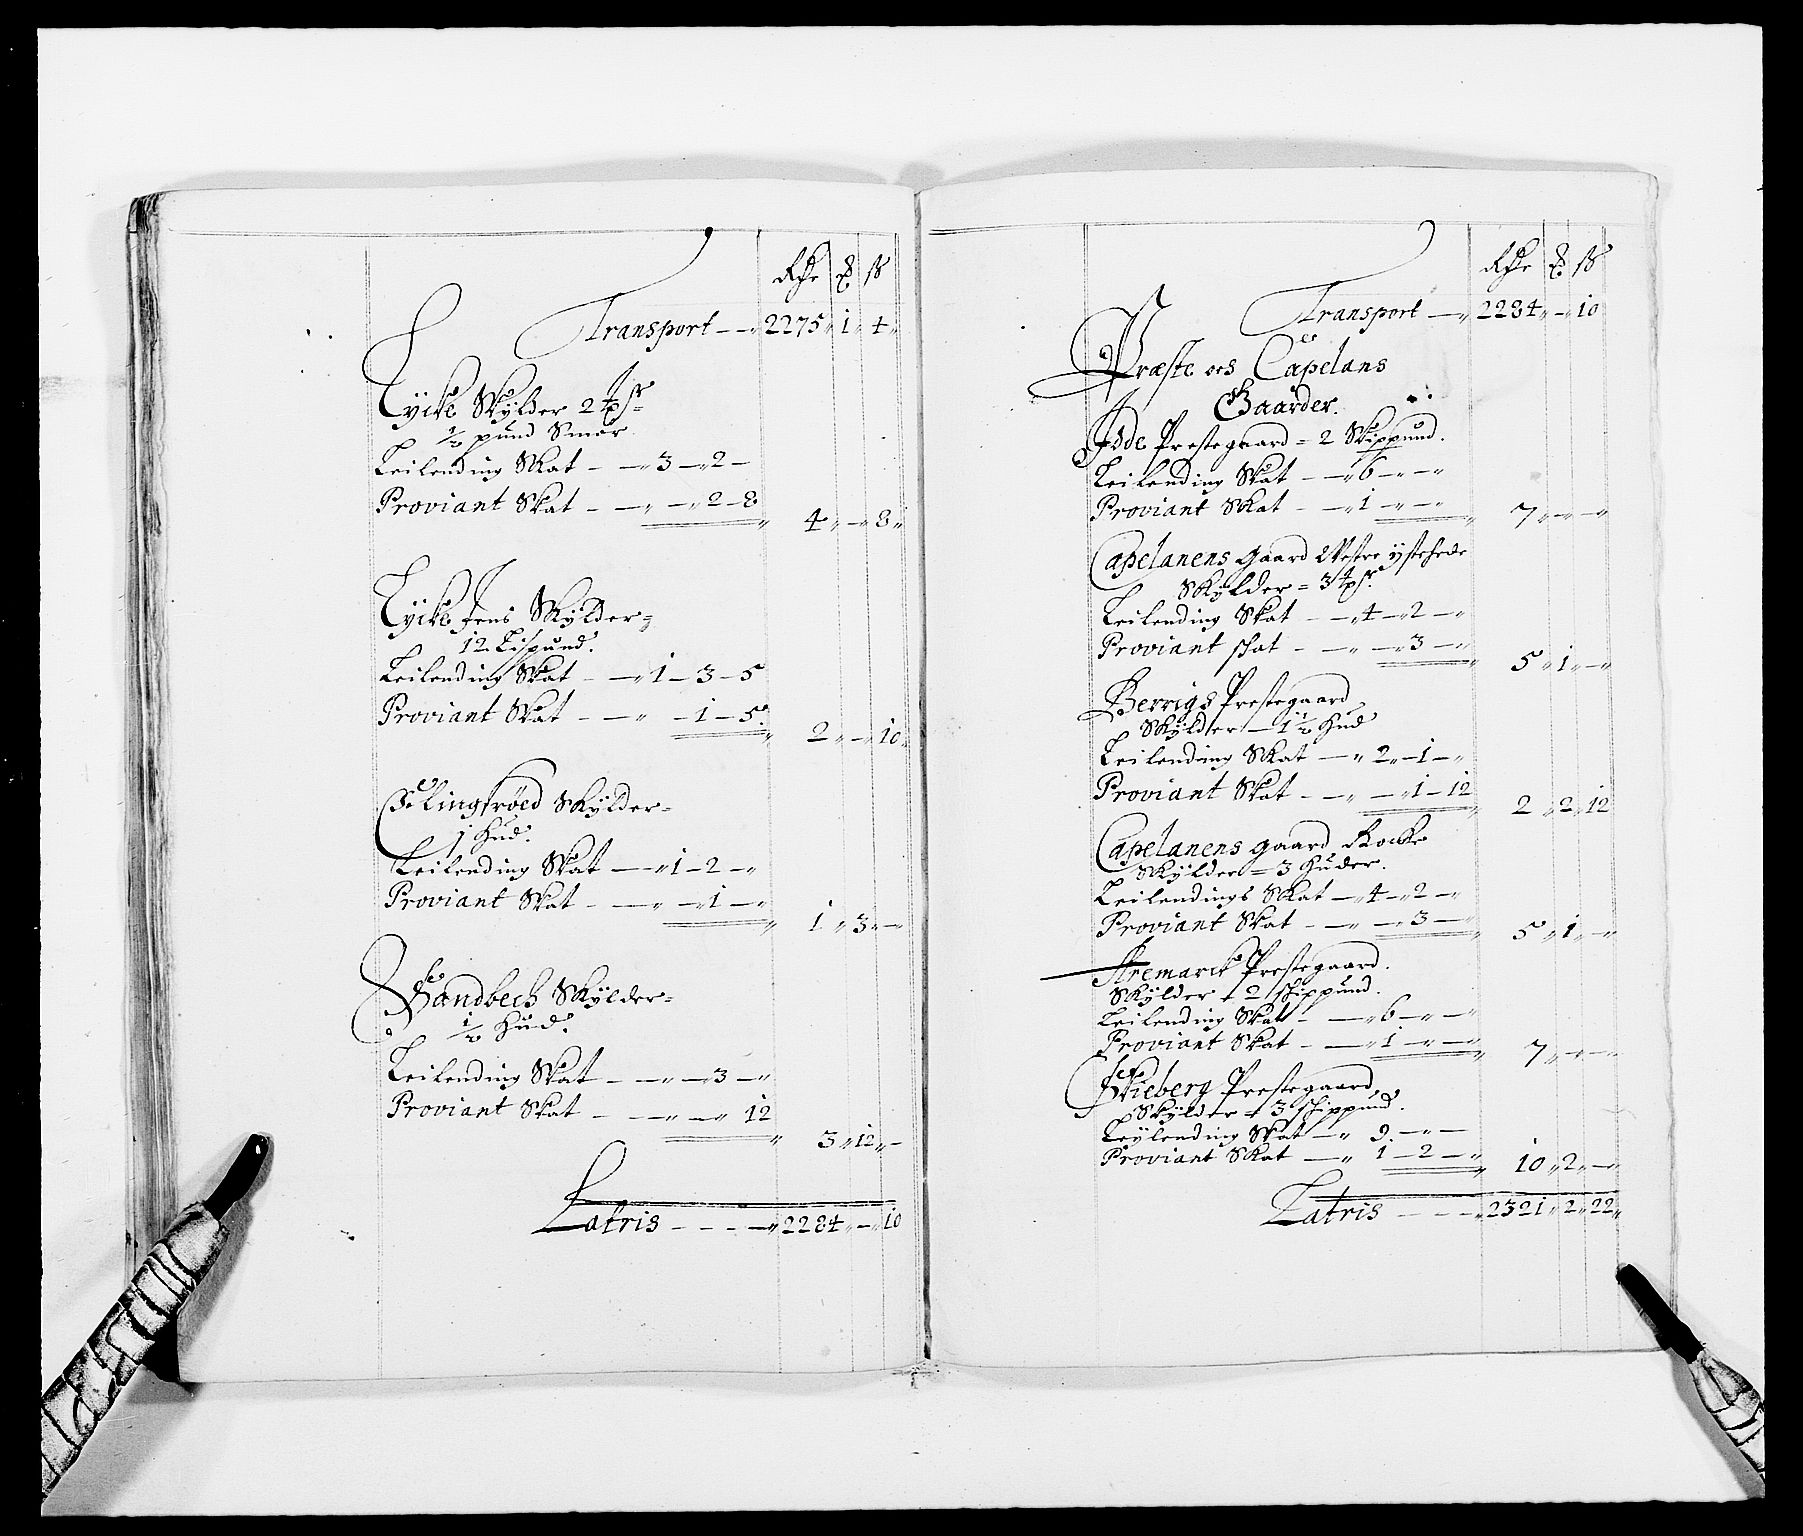 Rdr ß
Transport – – 2275 „ 1 „ 4 „
Lycke Skylder 2
½ pund Smør
Leilending Skat – – „ 3 – „ 2 –
Proviant Skat – – „ – „ 2 – 8
4 „ – „ 8 „
Lycke Jens Skylder =
12 Lispund.
Leilending Skat – – „ 1 – 3 – 5
Proviant Skat – – „ – 1 – 5
2 „ – „ 10 „
Skylder =
1 Hud.
Leilending Skat – „ 1 – 2 – „
Proviant Skat – – „ – „ 1 – „
1 „ 3 „ –
Sandbech Skylder =
½ Hud.
Leilending Skat – – „ – „ 3 – „
Proviant Skat – – „ – „ 12
3 „ 12 „ –
Latris – – – – „ 2284 „ – „ 10
Rdr ß
Transport – „ 2284 „ – „ 10
Præste och Capelans
Gaarder.
Idde Prestegaard = 2 Skippund.
Leilending Skat – – „ 6 – „ – „
Proviant Skat – – „ 1 – „ – „
7 „ – „ – „
Capelanens gaard Westre ystehede
Skylder = 3
Leilending Skat – – „ 4 – „ 2 – „
Proviant skat – – „ – „ 3 – „
5 „ 1 „ – „
Berrigs Prestegaard
Skylder – 1½ Hud
Leilending Skat – „ 2 „ – 1 – „
Proviant Skat – – „ – „ 1 – 12
2 „ 2 „ 12
Capelanens gaard Rocke
Skylder = 3 Huder.
Leilendings Skat – „ 4 – „ 2 – „
Proviant Skat – – „ – „ 3 – „
5 „ 1 „ – „
Aremarck Prestegaard.
Skylder = 2 skippund.
Leilending Skat – – „ 6 – „ – „
Proviant Skat – – „ 1 – „ – „
7 „ – „ – „
Skieberg Prestegaard
Skylder = 3 skippund.
Leylending Skat – „ 9. – „ –
Proviant Skat – „ 1 – 2 – „
10 „ 2 „ – „
Latris – – – „ 2321 „ 2 „ 22 „